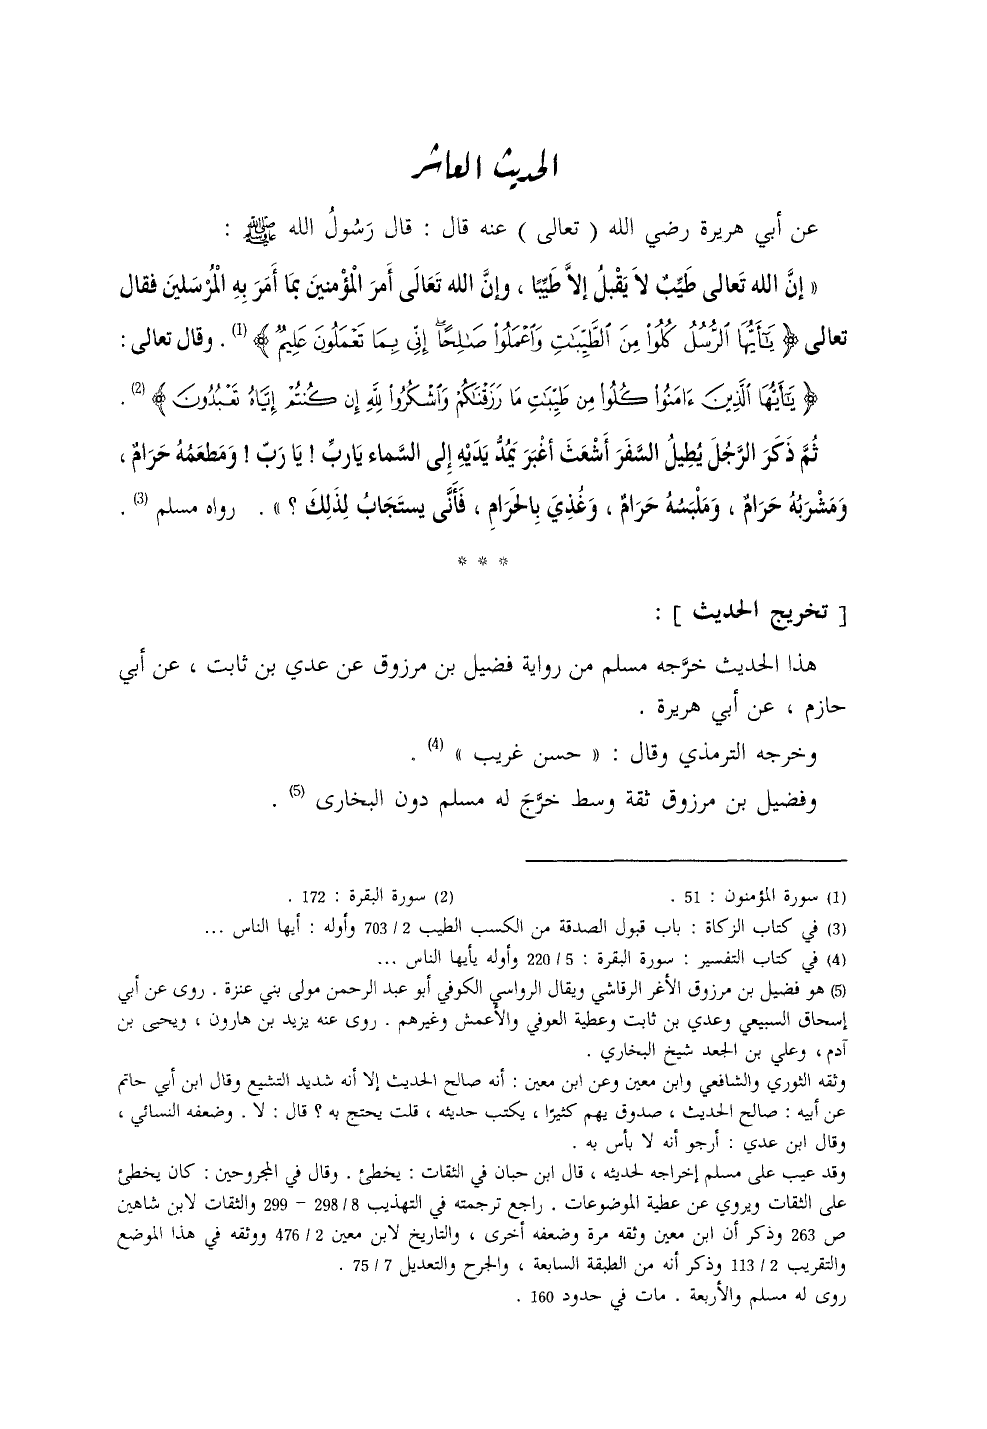 الحديث العاشر
عن أبي هريرة رضي الله ( تعالى ) عنه قال : قال رَسُولُ الله ﷺ :
« إنَّ الله تَعالى طَيِّبٌ لاَ يَقْبلُ إلاَّ طَيِّبًا ، وإنَّ الله تَعَالَى أَمرَ الْمؤْمنينَ بمَا أَمَرَ بِهِ الْمُرْسَلينَ فقال
تعالى ﴿ يَـٰٓأَيُّهَا ٱلرُّسُلُ كُلُوا۟ مِنَ ٱلطَّيِّبَـٰتِ وَٱعْمَلُوا۟ صَـٰلِحًا ۖ إِنِّى بِمَا تَعْمَلُونَ عَلِيمٌ ﴾ (1) . وقال تعالى :
﴿ يَـٰٓأَيُّهَا ٱلَّذِينَ ءَامَنُوا۟ كُلُوا۟ مِن طَيِّبَـٰتِ مَا رَزَقْنَـٰكُمْ وَٱشْكُرُوا۟ لِلَّهِ إِن كُنتُمْ إِيَّاهُ تَعْبُدُونَ ﴾ (2) .
ثُمَّ ذَكَرَ الرَّجُلَ يُطِيلُ السَّفَرَ أَشْعَثَ أغْبَرَ يَمُدُّ يَدَيْهِ إِلى السَّماء يَاربِّ ! يَا رَبّ ! وَمَطعَمُهُ حَرَامٌ ،
وَمَشْرَبُهُ حَرَامٌ ، وَمَلْبَسُهُ حَرَامٌ ، وَغُذِيَ بِالحَرَامِ ، فَأَنَّى يستَجَابُ لِذَلِكَ ؟ » . رواه مسلم (3) .
* * *
[ تخريج الحديث ] :
هذا الحديث خرَّجه مسلم من رواية فضيل بن مرزوق عن عدي بن ثابت ، عن أبي
حازم ، عن أبي هريرة .
وخرجه الترمذي وقال : « حسن غريب » (4) .
وفضيل بن مرزوق ثقة وسط خرَّجَ له مسلم دون البخارى (5) .
(1) سورة المؤمنون : 51 . (2) سورة البقرة : 172 .
(3) في كتاب الزكاة : باب قبول الصدقة من الكسب الطيب 2 / 703 وأوله : أيها الناس ...
(4) في كتاب التفسير : سورة البقرة : 5 / 220 وأوله يأيها الناس ...
(5) هو فضيل بن مرزوق الأغر الرقاشي ويقال الرواسي الكوفي أبو عبد الرحمن مولى بني عنزة . روى عن أبي
إسحاق السبيعي وعدي بن ثابت وعطية العوفي والأعمش وغيرهم . روى عنه يزيد بن هارون ، ويحيى بن
آدم ، وعلي بن الجعد شيخ البخاري .
وثقه الثوري والشافعي وابن معين وعن ابن معين : أنه صالح الحديث إلا أنه شديد التشيع وقال ابن أبي حاتم
عن أبيه : صالح الحديث ، صدوق يهم كثيرًا ، يكتب حديثه ، قلت يحتج به ؟ قال : لا . وضعفه النسائي ،
وقال ابن عدي : أرجو أنه لا بأس به .
وقد عيب على مسلم إخراجه لحديثه ، قال ابن حبان في الثقات : يخطئ . وقال في المجروحين : كان يخطئ
على الثقات ويروي عن عطية الموضوعات . راجع ترجمته في التهذيب 8 / 298 – 299 والثقات لابن شاهين
ص 263 وذكر أن ابن معين وثقه مرة وضعفه أخرى ، والتاريخ لابن معين 2 / 476 ووثقه في هذا الموضع
والتقريب 2 / 113 وذكر أنه من الطبقة السابعة ، والجرح والتعديل 7 / 75 .
روى له مسلم والأربعة . مات في حدود 160 .